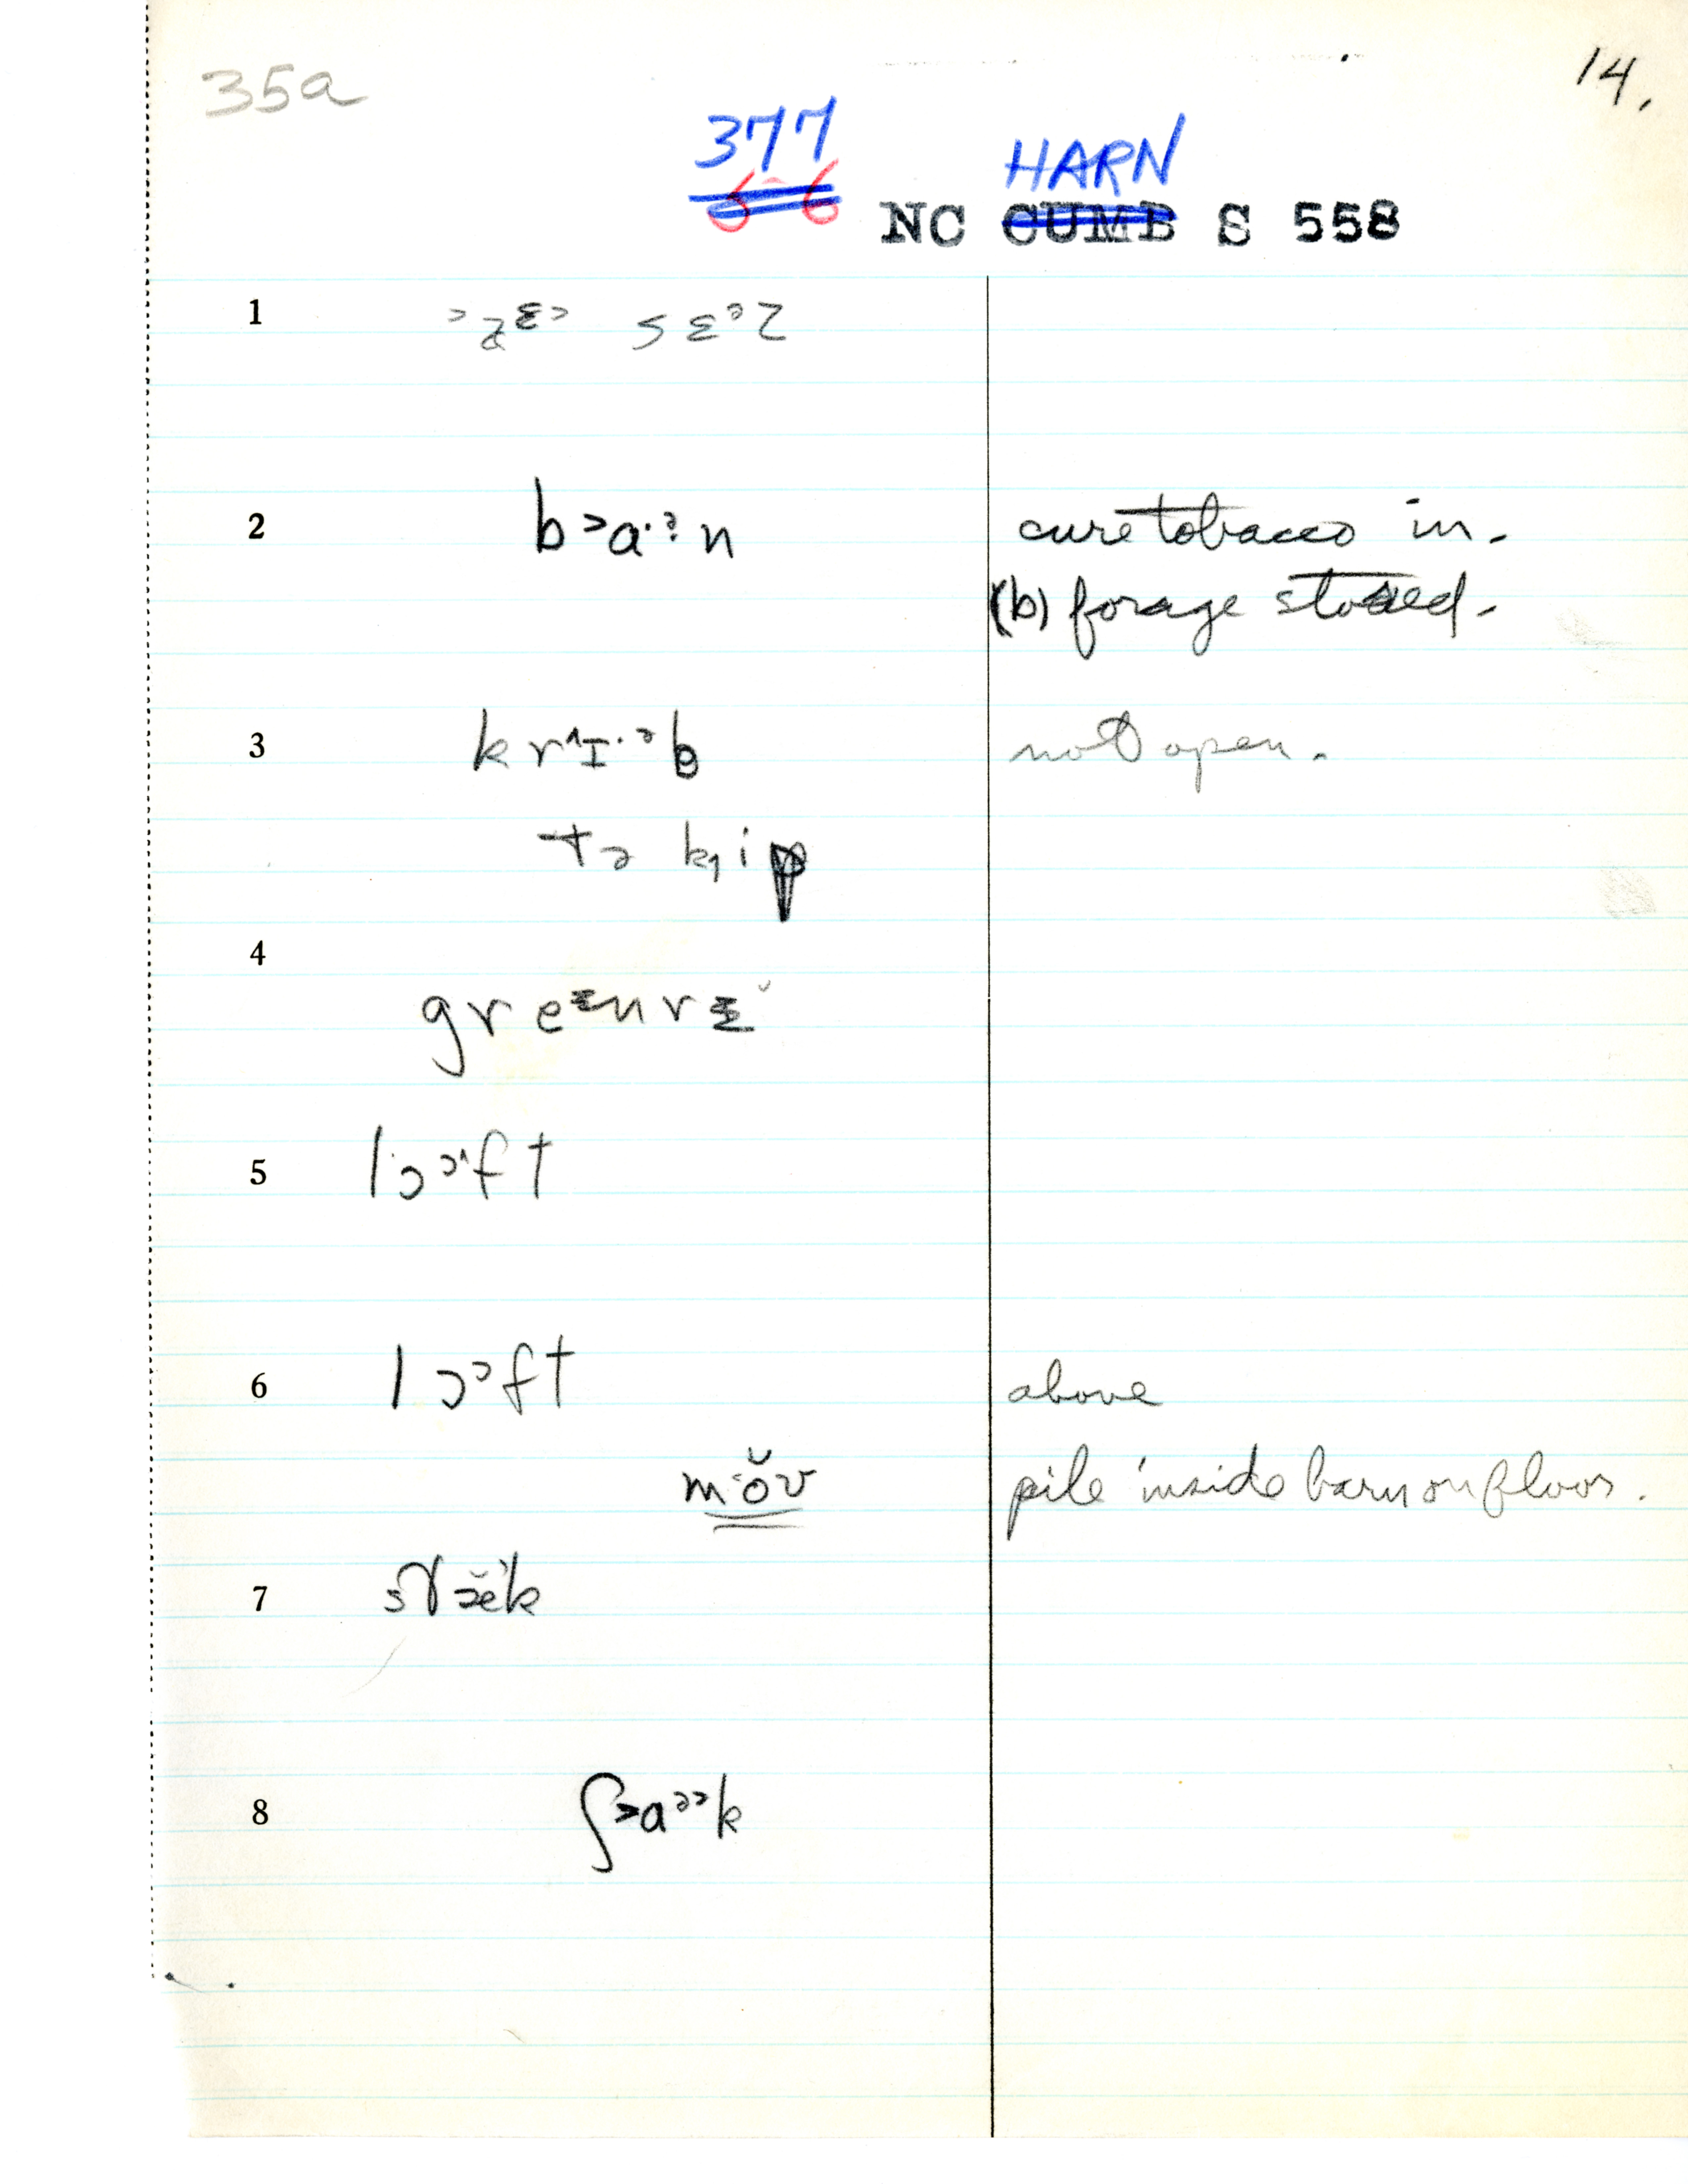 35a
14.
377
6 6
HARN
NC CUMB S 558
1
2 b˃a·ˀ:n cure tobacco in.
(b) forage stored.
3 kr˄ɪ·ᵊb not open.
tə k̟ip
4
gr
5 lɔᵓ˄ft
6 lɔᵓft above
mŏv pile inside barn on floor.
7
8 ʃ˃aᵊ˃k